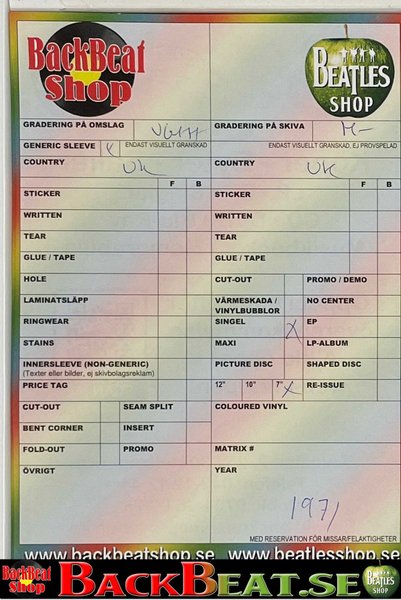 BackBeat
Shop
BEATLES
SHOP
GRADERING PÅ OMSLAG VG+++ GRADERING PÅ SKIVA M-
GENERIC SLEEVE X ENDAST VISUELLT GRANSKAD ENDAST VISUELLT GRANSKAD, EJ PROVSPELAD
COUNTRY UK COUNTRY UK
F B F B
STICKER STICKER
WRITTEN WRITTEN
TEAR TEAR
GLUE / TAPE GLUE / TAPE
HOLE CUT-OUT PROMO / DEMO
LAMINATSLÄPP VÄRMESKADA / VINYLBUBBLOR NO CENTER
RINGWEAR SINGEL X EP
STAINS MAXI LP-ALBUM
INNERSLEEVE (NON-GENERIC) PICTURE DISC SHAPED DISC
(Texter eller bilder, ej skivbolagsreklam)
PRICE TAG 12" 10" 7" X RE-ISSUE
CUT-OUT SEAM SPLIT COLOURED VINYL
BENT CORNER INSERT
FOLD-OUT PROMO MATRIX #
ÖVRIGT YEAR
1971
MED RESERVATION FÖR MISSAR/FELAKTIGHETER
www.backbeatshop.se www.beatlesshop.se
BackBeat
Shop
BACKBEAT.SE
BEATLES
SHOP